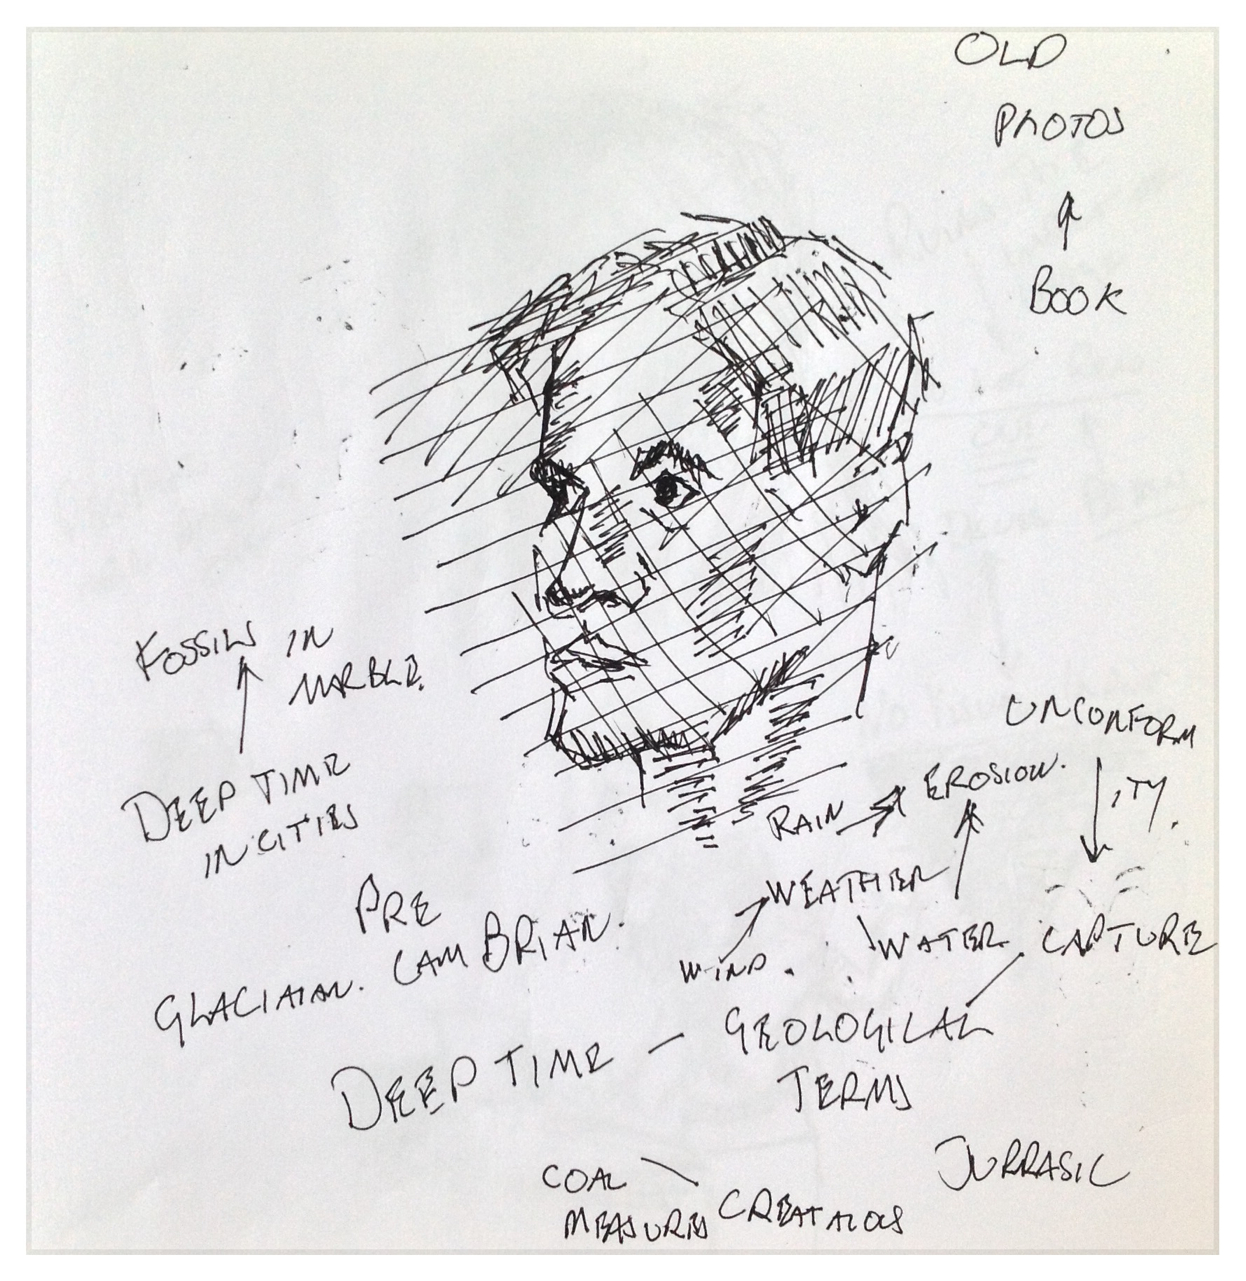 OLD
PHOTOS
BOOK
FOSSILS IN
MARBLE.
DEEP TIME
IN CITIES
UNCONFORM
ITY.
RAIN
EROSION.
WEATHER
WIND.
WATER.
CAPTURE
PRE
CAMBRIAN.
GLACIAIAN.
DEEP TIME - GEOLOGICAL
TERMS
JURRASIC
COAL
MEASURES
CREATAIOUS